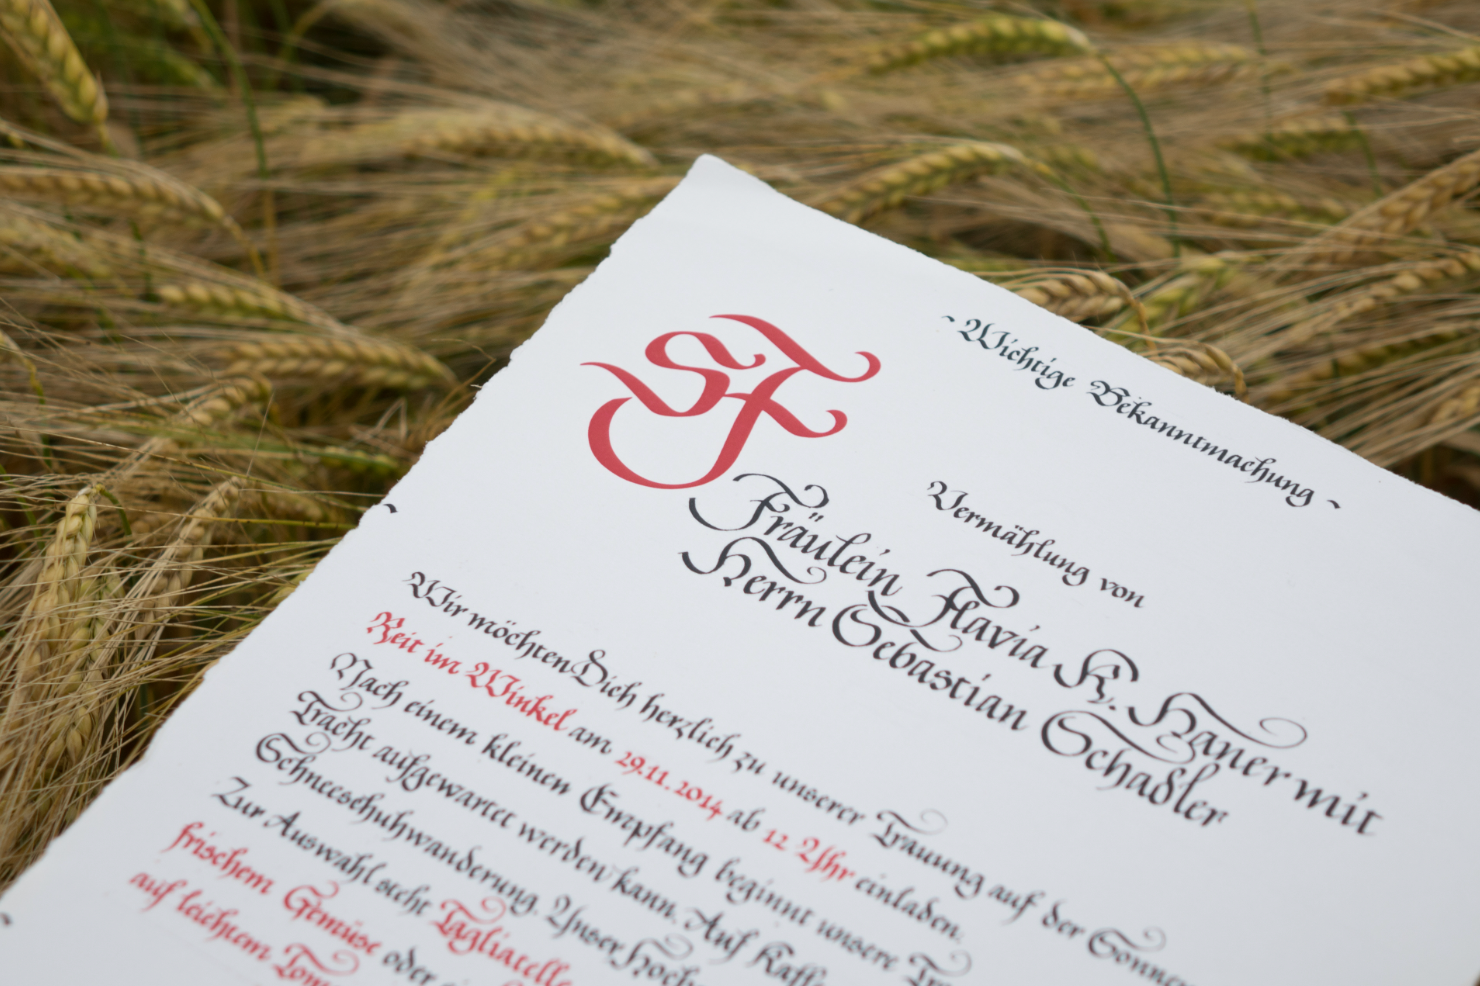 SF
~ Wichtige Bekanntmachung ~
Vermählung von
Fräulein Flavia K. Haner mit
Herrn Sebastian Schadler
Wir möchten Dich herzlich zu unserer Trauung auf der Sonnen
Reit im Winkel am 29.11.2014 ab 12 Uhr einladen.
Nach einem kleinen Empfang beginnt unsere Tr
Tracht aufgewartet werden kann. Auf Kaffe
Schneeschuhwanderung. Unser Hoch
Zur Auswahl steht Tagliatelle
frischem Gemüse oder
auf leichtem Tom